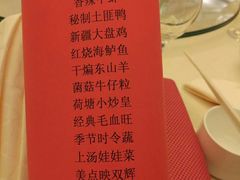 秘制土匪鸭
新疆大盘鸡
红烧海鲈鱼
干煸东山羊
菌菇牛仔粒
荷塘小炒皇
经典毛血旺
季节时令蔬
上汤娃娃菜
美点映双辉